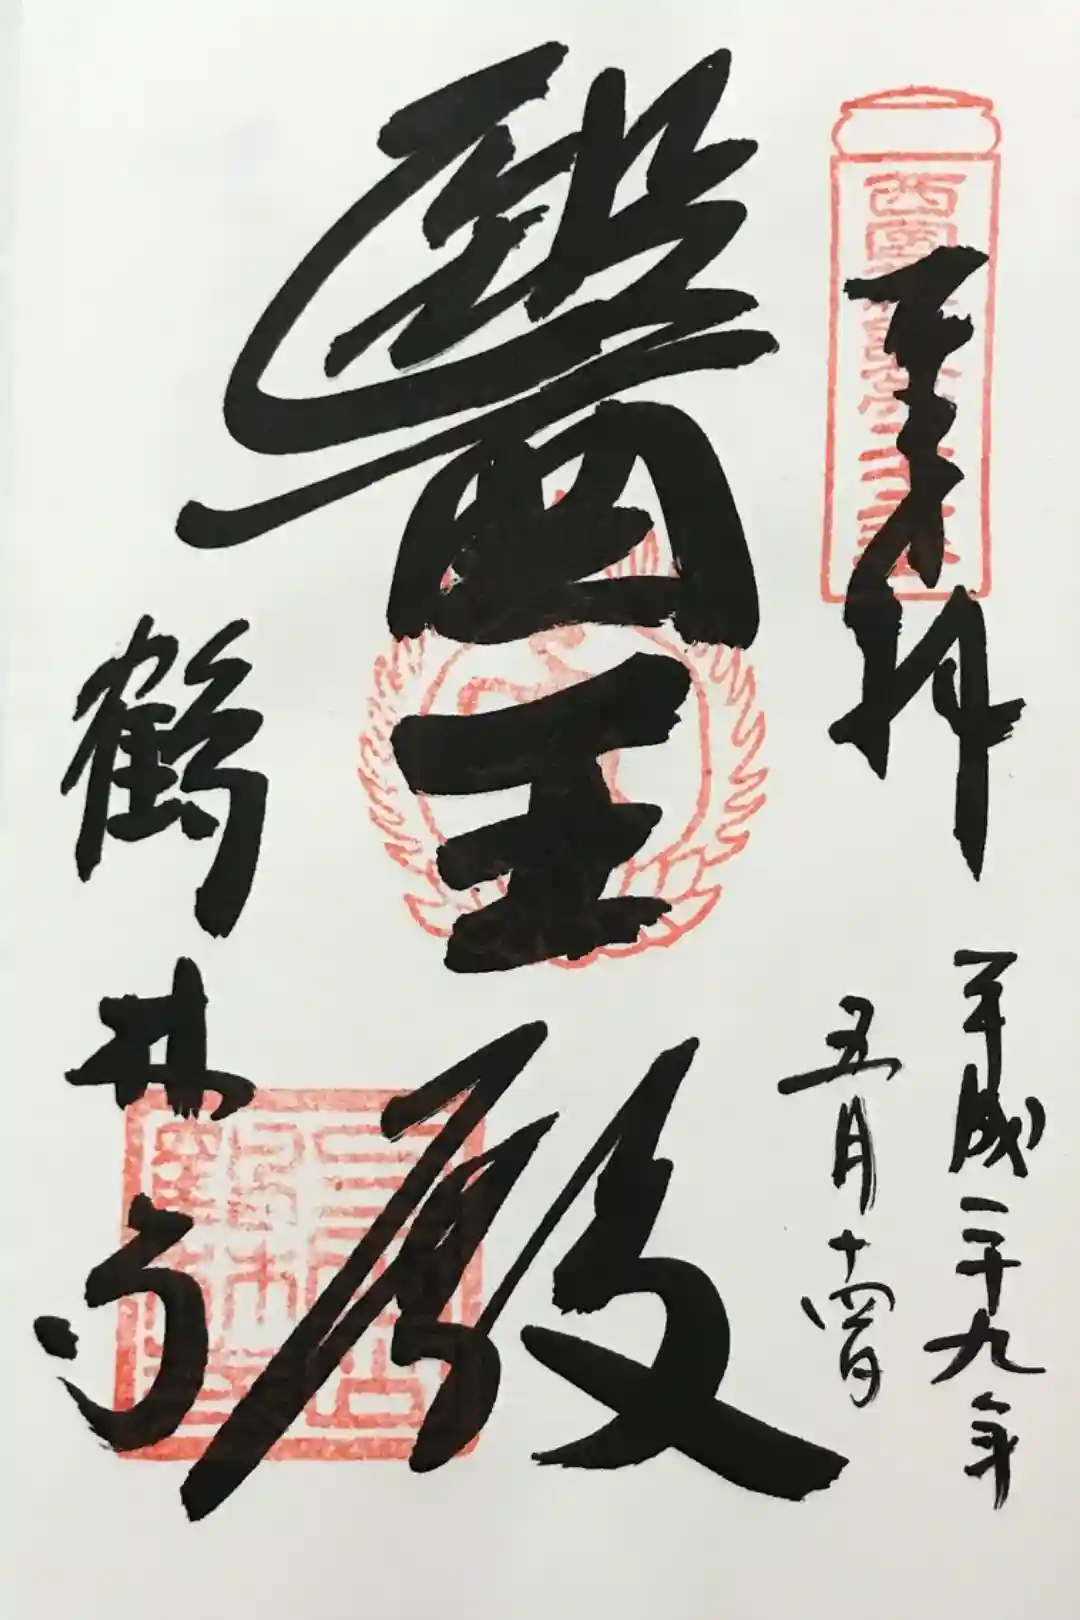 奉拝
平成二十九年
五月十四日
醫王殿
鶴林寺